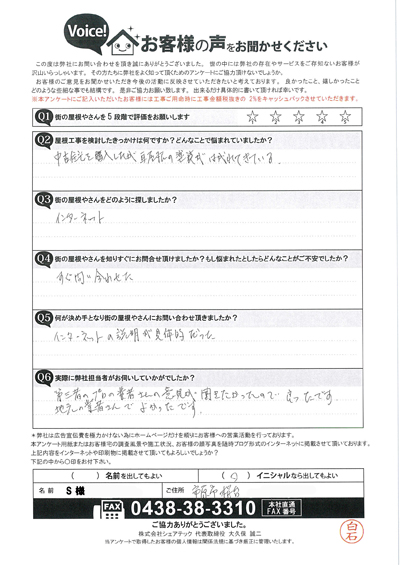 Voice!
お客様の声をお聞かせください
この度は弊社にお問い合わせを頂き誠にありがとうございました。世の中には弊社の存在やサービスをご存知ないお客様が
沢山いらっしゃいます。その方たちに弊社をよく知って頂くためのアンケートにご協力頂けないでしょうか。
お客様のご意見をお聞かせいただき今後の活動に反映させていただきたいと考えております。良かったこと、嬉しかったこと
どのような些細な事でも結構です。是非ご協力お願い致します。出来るだけ具体的に書いて頂ければ幸いです。
※本アンケートにご記入いただいたお客様には工事ご用命時に工事金額税抜きの 2%をキャッシュバックさせていただきます。
Q1 街の屋根やさんを5段階で評価をお願いします ☆ ☆ ☆ ☆ ☆
Q2 屋根工事を検討したきっかけは何ですか?どんなことで悩まれていましたか?
中古住宅を購入したが 屋根の塗装が はがれてきている.
Q3 街の屋根やさんをどのように探しましたか?
インターネット
Q4 街の屋根やさんを知りすぐにお問合せ頂けましたか?もし悩まれたとしたらどんなことがご不安でしたか?
すぐ問い合わせた
Q5 何が決め手となり街の屋根やさんにお問い合わせ頂きましたか?
インターネットの説明が具体的だった
Q6 実際に弊社担当者がお伺いしていかがでしたか?
第三者のプロの業者さんの意見が 聞きたかったので 良かったです.
地元の業者さんで よかったです.
＊弊社は広告宣伝費を極力かけない為にホームページだけを頼りにお客様への営業活動を行っております。
本アンケート用紙またはお客様宅の調査風景や施工状況、お客様の顔写真を随時ブログ形式のインターネットに掲載させて頂いております。
上記内容をインターネットや印刷物に掲載させて頂いてもよろしいでしょうか?
下記の中から○印をお付け下さい。
( ) 名前を出してもよい ( ○ ) イニシャルなら出してもよい
名前 S 様 ご住所 市原市
FAX 0438-38-3310 本社直通 FAX番号
ご協力ありがとうございました。
株式会社シェアテック 代表取締役 大久保 誠二
当アンケートで取得したお客様の個人情報は関係法律に基づき厳正に管理いたします。
白石